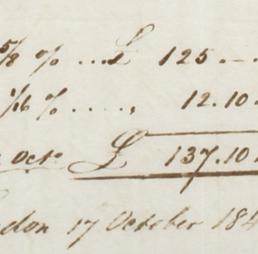 5/8 % ... £ 125 . - .
1/16 % ..... , 12.10 .
Octo £ 137.10
don 17 October 184